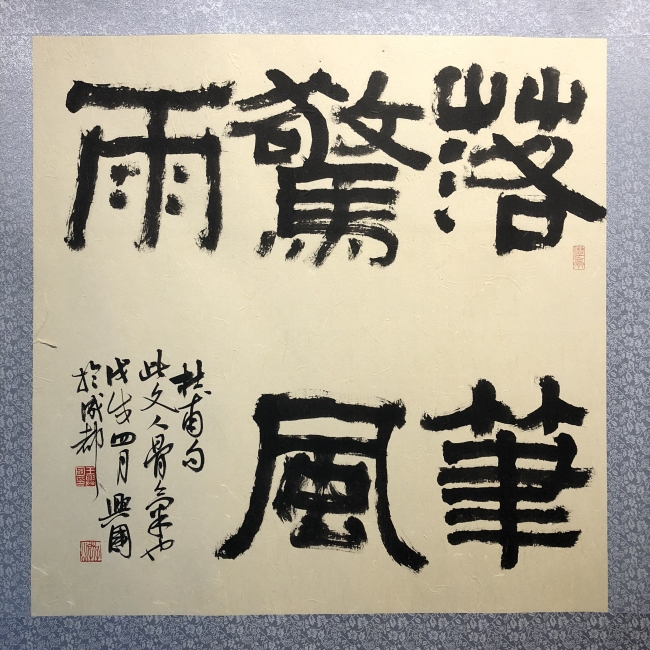 落筆
驚風
雨
杜甫句
此文人骨氣也
戊戌四月興國
於成都